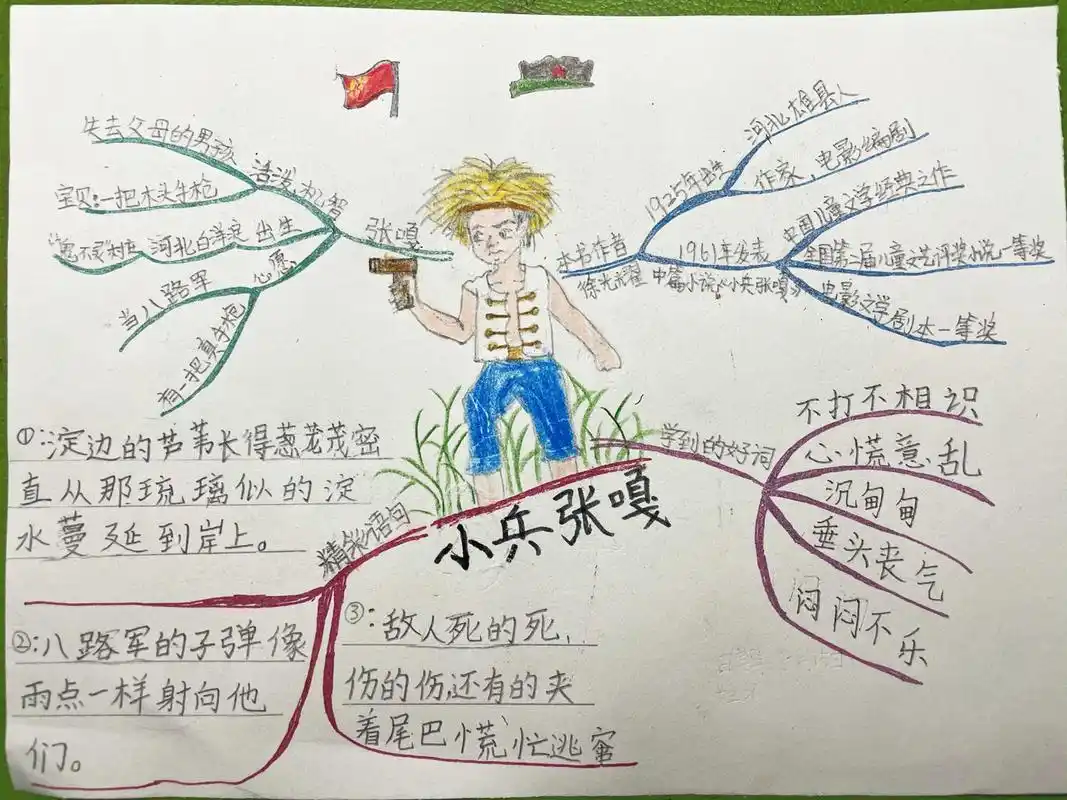 失去父母的男孩
活泼,机智
宝贝:一把木头手枪
张嘎
河北白洋淀
出生
当八路军
心愿
有一把真手枪
河北雄县人
1925年出生
作家、电影编剧
本书作者
徐光耀
1961年发表
中篇小说《小兵张嘎》
中国儿童文学经典之作
全国第二届儿童文艺评奖小说一等奖
电影文学剧本一等奖
①:淀边的芦苇长得葱茏茂密
直从那琉璃似的淀
水蔓延到岸上。
精彩语句
小兵张嘎
学到的好词
不打不相识
心慌意乱
沉甸甸
垂头丧气
闷闷不乐
②:八路军的子弹像
雨点一样射向他
们。
③:敌人死的死,
伤的伤,还有的夹
着尾巴慌忙逃窜